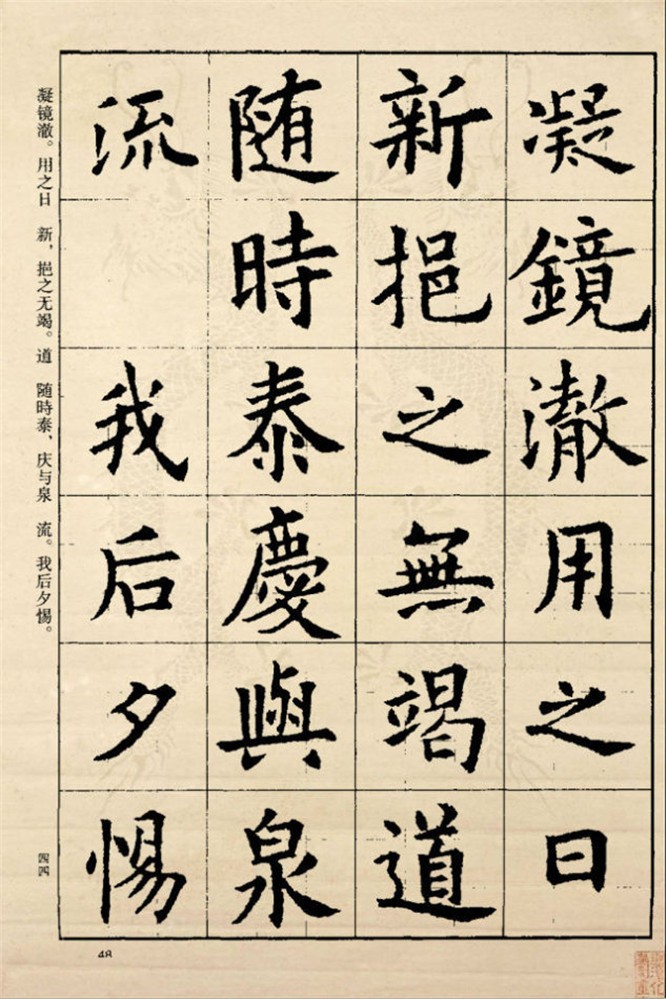 凝鏡澈用之日
新挹之無竭道
随時泰慶與泉
流我后夕惕
凝镜澈。用之日 新，挹之无竭。道 随時泰、庆与泉 流。我后夕惕。
四四
48